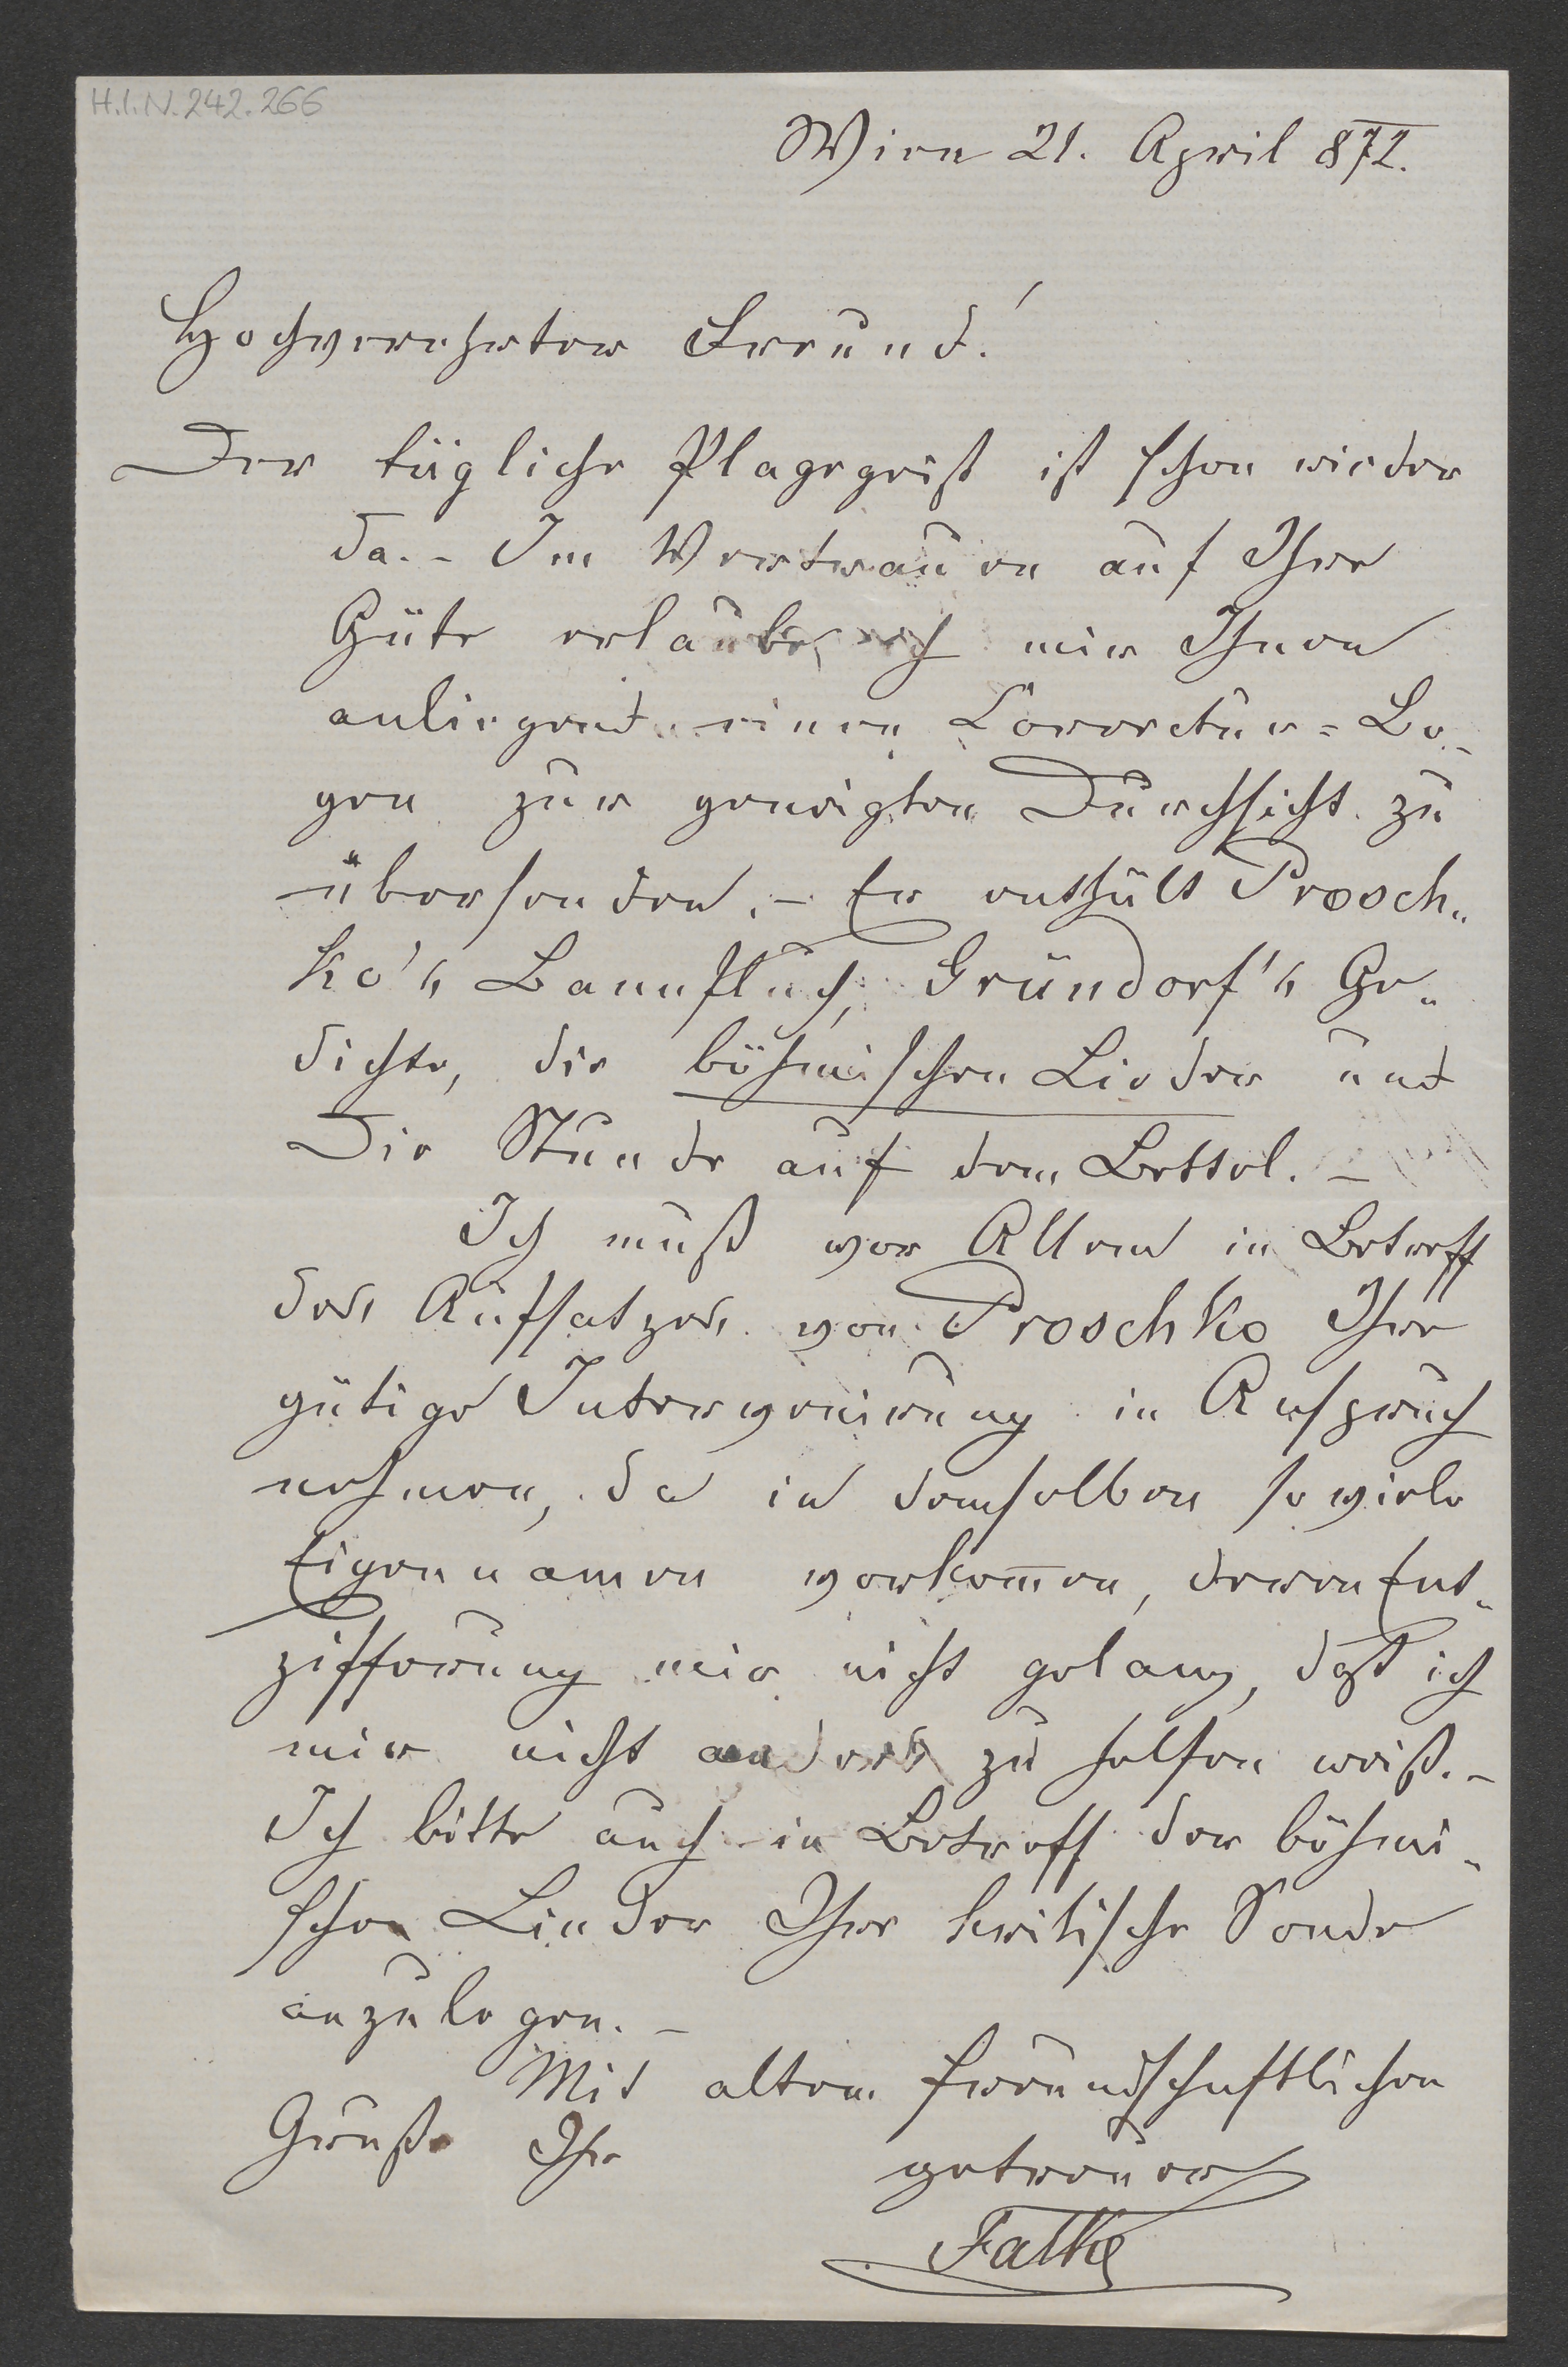 H.I.N. 242.266
Wien 21. April 872.
Hochverehrter Freund!
Der tägliche Plagegeist ist schon wieder
da. - Im Vertrauen auf Ihre
Güte erlaube ich mir Ihnen
anliegend einen Correctur=Bo-
gen zur geneigten Durchsicht zu
übersenden. - Er enthält Prosch-
ko's Bannfluch, Gründorf's Ge-
dichte, die böhmischen Lieder und
Die Stunde auf dem Bettel. -
Ich muß vor Allem in Betreff
des Aufsatzes von Proschko Ihre
gütige Intervenirung in Anspruch
nehmen, da in demselben so viele
Eigennamen vorkom̄en, deren Ent-
zifferung mir nicht gelang, daß ich
mir nicht anders zu helfen weiß. -
Ich bitte auch in Betreff der böhmi-
schen Lieder Ihre kritische Sonde
anzulegen. -
Mit altem freundschaftlichen
Gruße Ihr
getreuer
Falke